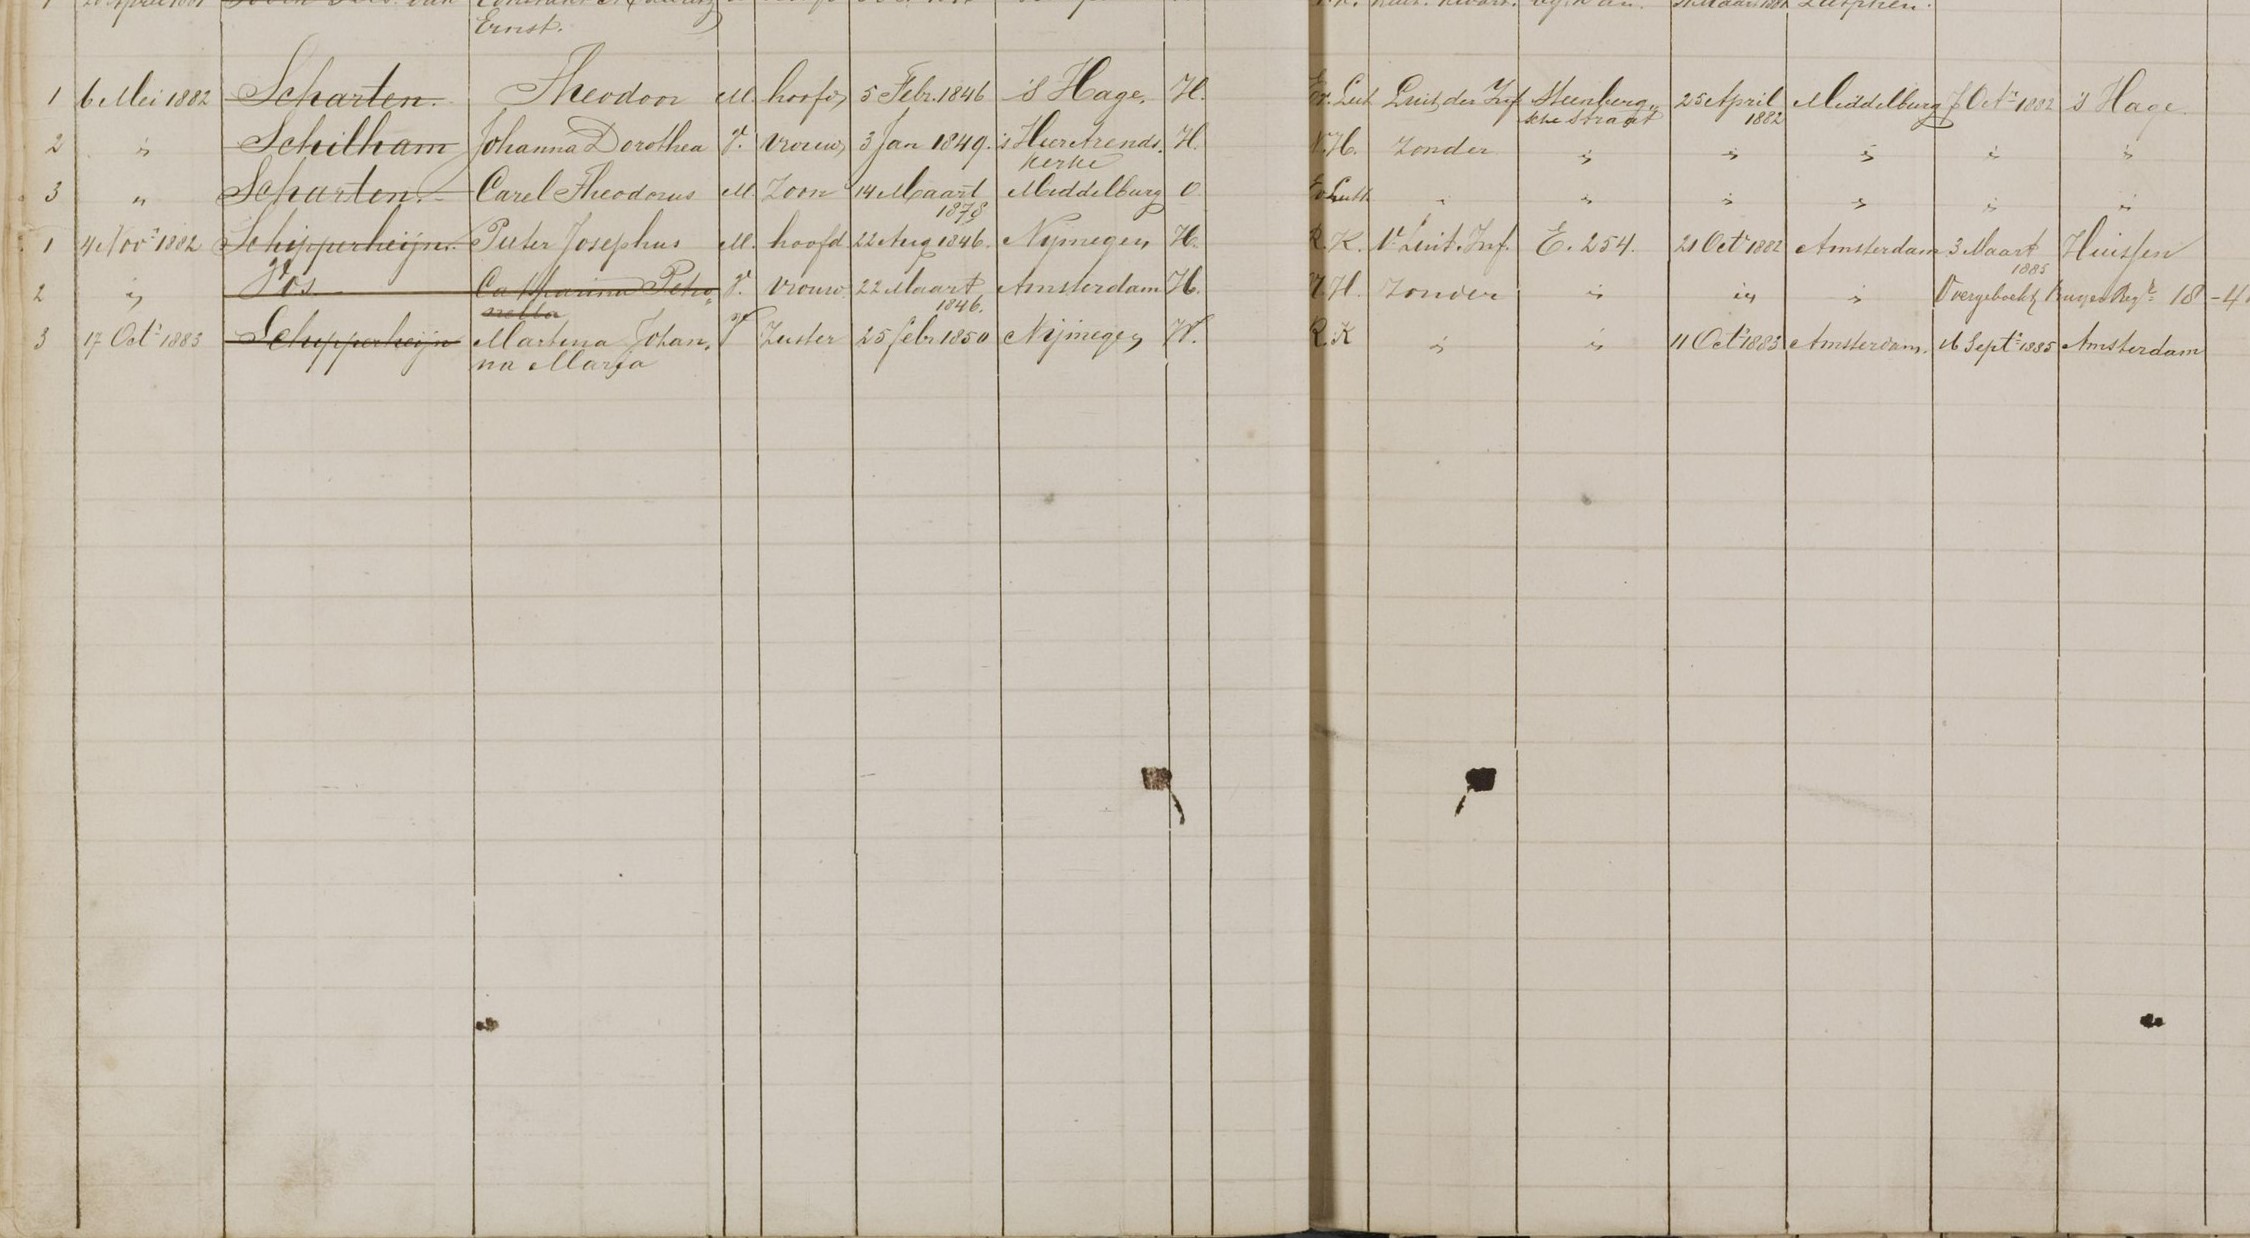 Ernst.
1 6 Mei 1882 Scharten. Theodoor M. hoofd 5 Febr. 1846 's Hage, H. Ev. Luth Luit. der Inf Steenberg„ 25 April Middelburg 7 Oct.r 1882 's Hage
sche straat 1882
2 „ Schilham Johanna Dorothea V. vrouw 3 Jan 1849. 's Heer Arends„ H. N.H. Zonder „ „ „ „ „
kerke
3 „ Scharten. Carel Theodorus M. Zoon 14 Maart Middelburg O Ev Luth „ „ „ „ „ „
1878
1 4 Nov.r 1882 Schipperheijn. Pieter Josephus M. hoofd 22 Aug 1846. Nijmegen H. R.K. 1e Luit. Inf. E. 254. 21 Oct.r 1882 Amsterdam 3 Maart Huissen
1885
2 „ Vos Catharina Petro„ V. vrouw 22 Maart Amsterdam H. N.H. Zonder „ „ „ Overgeboekt Burger Reg.r 18 - 4
nella 1846.
3 17 Oct.r 1883 Schipperheijn Martina Johan„ V Zuster 25 febr 1850 Nijmegen W. R.K „ „ 11 Oct.r 1883 Amsterdam. 16 Sept.r 1885 Amsterdam
na Maria